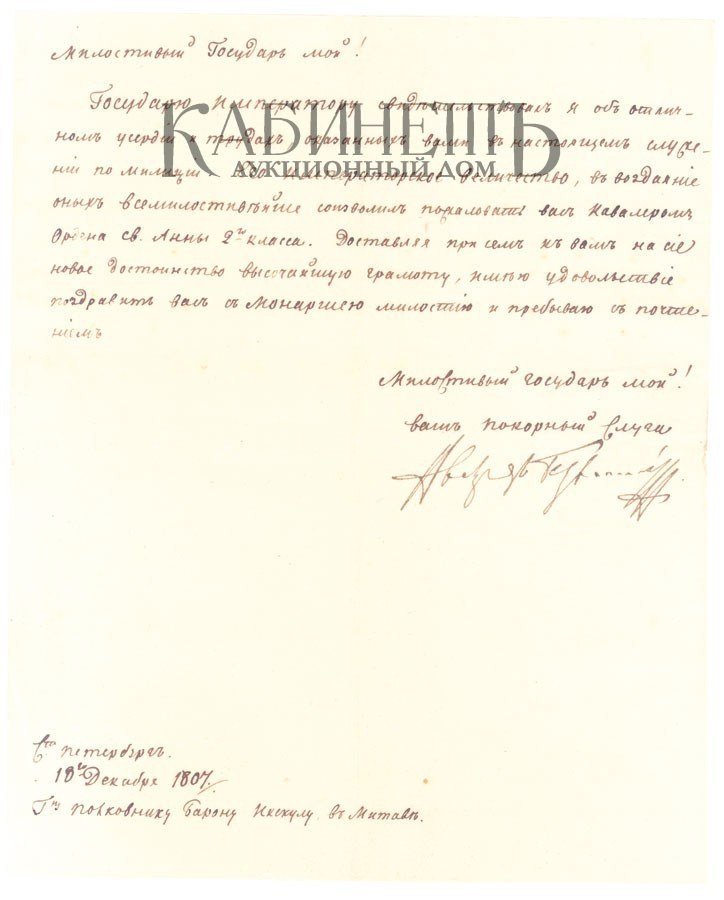 Милостивый Государь мой!
Государю Императору свидѣтельствовалъ я объ отлич-
номъ усердіи и трудахъ, оказанныхъ вами въ настоящемъ служе-
ніи по милиціи Его Императорское Величество, въ воздаяніе
оныхъ всемилостивѣйше соизволилъ пожаловать васъ Кавалеромъ
Ордена св. Анны 2го класса. Доставляя при семъ къ вамъ на сіе
новое достоинство высочайшую грамоту, имѣю удовольствіе
поздравить васъ съ Монаршею милостію и пребываю съ почте-
ніемъ
Милостивый государь мой!
вашъ покорный слуга
КАБИНЕТЪ
АУКЦИОННЫЙ ДОМ
Ст. петербургъ.
Декабря 1807.
Гну полковнику Барону Икскулу въ Митавѣ.